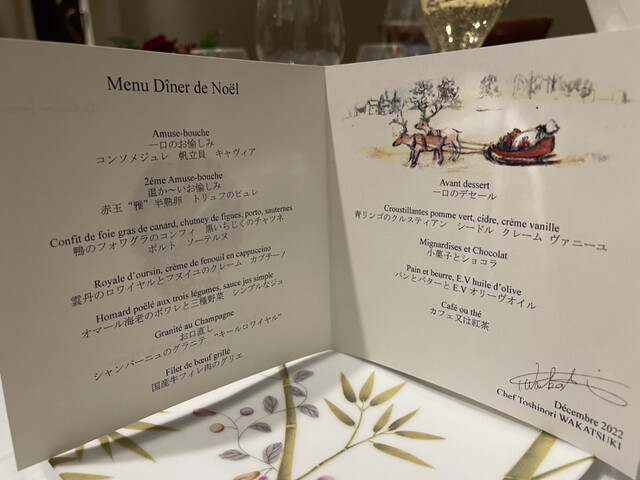 Menu Dîner de Noël
Amuse-bouche
一口のお愉しみ
コンソメジュレ　帆立貝　キャヴィア
2éme Amuse-bouche
温か〜いお愉しみ
赤玉“雅”半熟卵　トリュフのピュレ
Confit de foie gras de canard, chutney de figues, porto, sauternes
鴨のフォワグラのコンフィ　黒いちじくのチャツネ
ポルト　ソーテルヌ
Royale d'oursin, crème de fenouil en cappuccino
雲丹のロワイヤルとフヌイユのクレーム　カプチーノ
Homard poêlé aux trois légumes, sauce jus simple
オマール海老のポワレと三種野菜　シンプルなジュ
Granité au Champagne
お口直し
シャンパーニュのグラニテ　“キールロワイヤル”
Filet de bœuf grillé
国産牛フィレ肉のグリエ
Avant dessert
一口のデセール
Croustillantes pomme vert, cidre, crème vanille
青リンゴのクルスティアン　シードル　クレーム　ヴァニーユ
Mignardises et Chocolat
小菓子とショコラ
Pain et beurre, E.V huile d'olive
パンとバターとE.V オリーヴオイル
Café ou thé
カフェ又は紅茶
Décembre 2022
Chef Toshinori WAKATSUKI